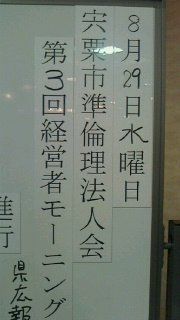 8月29日水曜日
宍粟市準倫理法人会
第3回経営者モーニング
進行
県広報